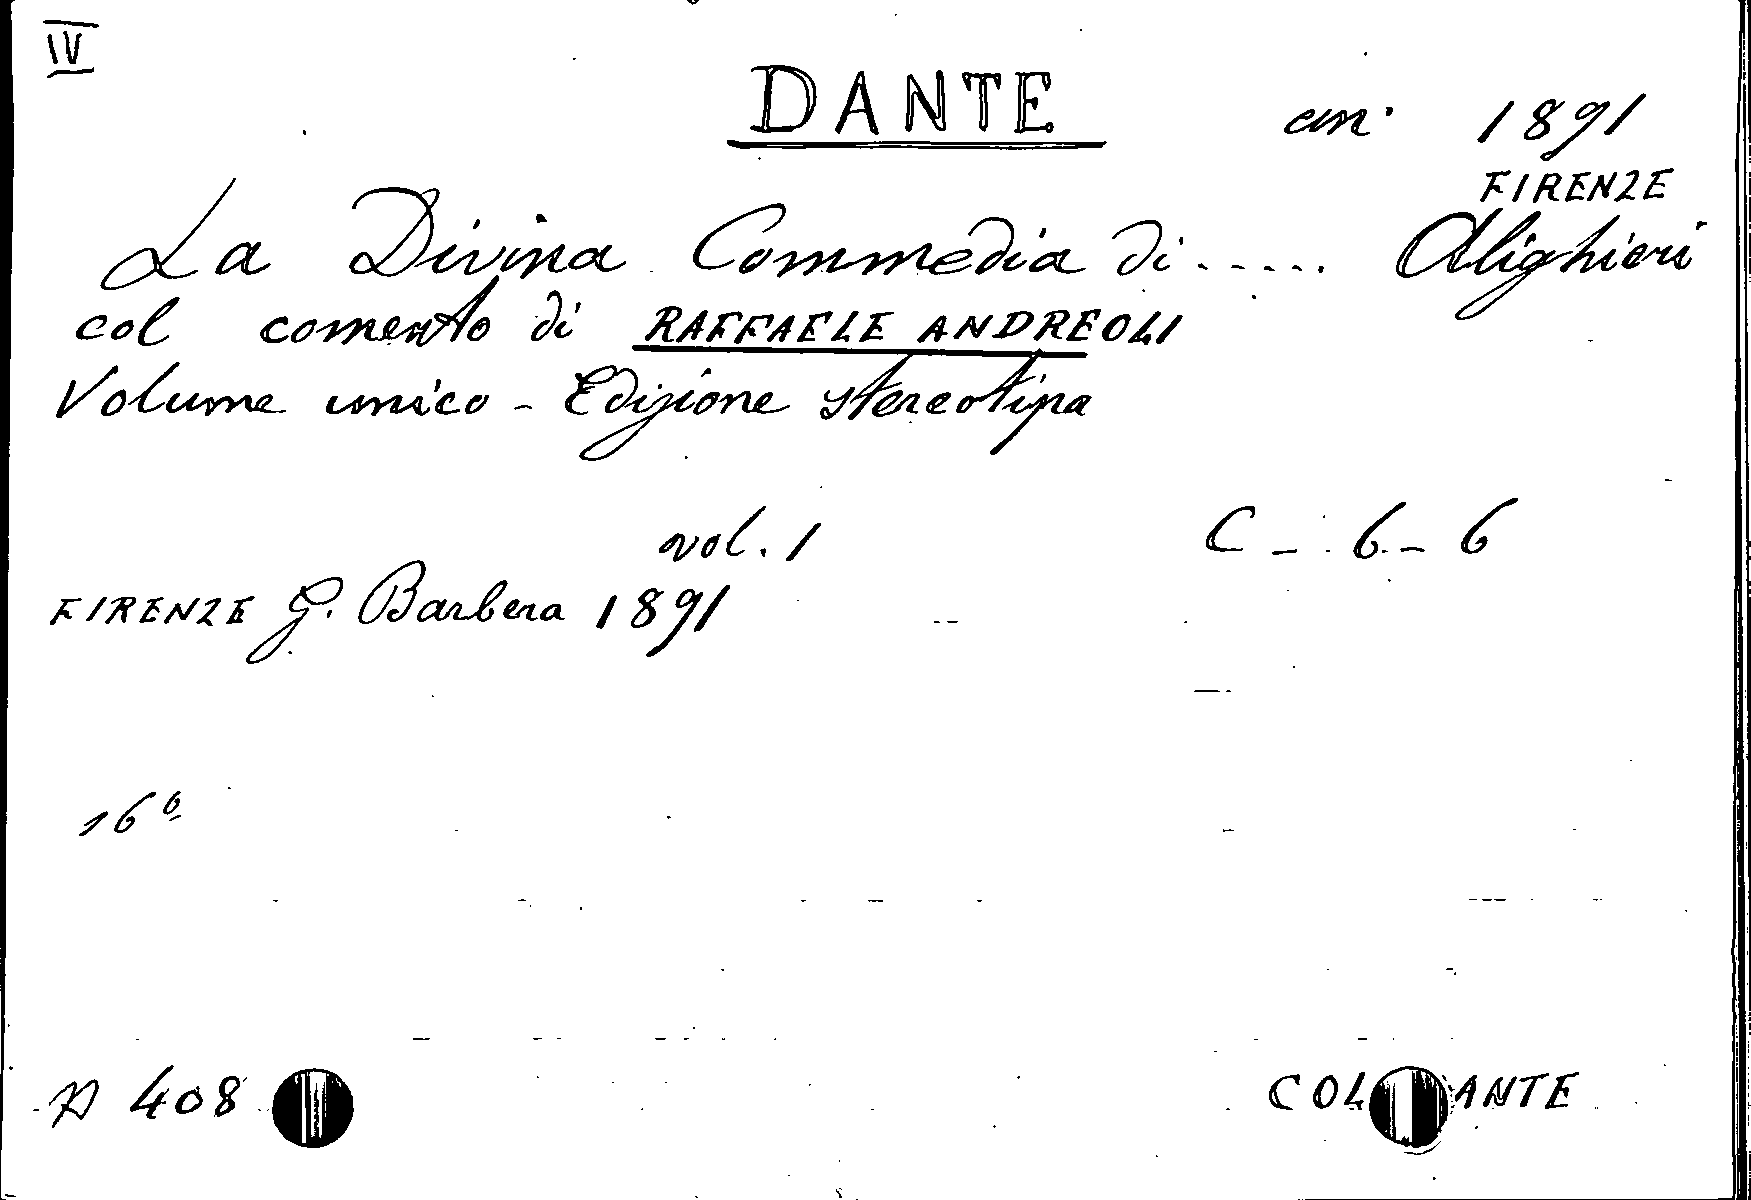 IV
DANTE
an. 1891
FIRENZE
La Divina Commedia di ..... Alighieri
col comento di RAFFAELE ANDREOLI
Volume unico - Edizione stereotipa
vol. 1 C - 6 - 6
FIRENZE G. Barbera 1891
16º
408
COL ANTE